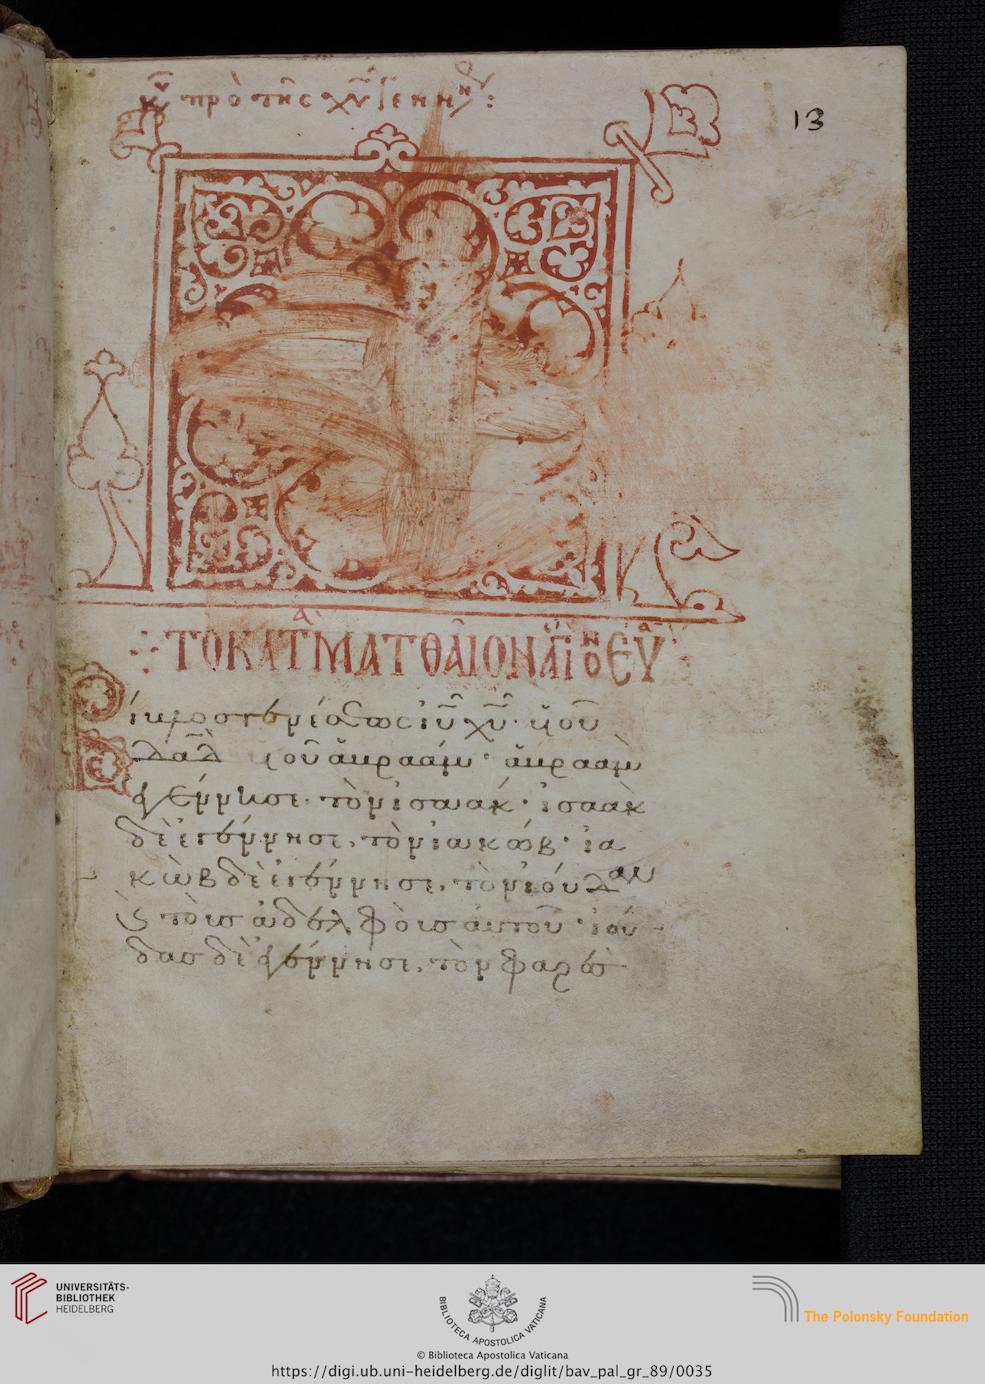 κυ πρὸ τῆς χυ γεννη :
13
ΤΟ ΚΑΤᾺ ΜΑΤΘΑῖΟΝ ἍΓΙΟΝ ΕΥΑ
Βίβλος γενέσεως ιυ χυ· υἱοῦ
δαδ υἱοῦ ἀβραάμ· ἀβραὰμ
ἐγέννησε τὸν ἰσαάκ· ἰσαὰκ
δὲ ἐγέννησε, τὸν ἰακώβ· ἰα
κὼβ δὲ ἐγέννησε, τὸν ἰούδαν
καὶ τοὺς ἀδελφοὺς αὐτοῦ· ἰού
δας δὲ ἐγέννησε, τὸν φαρὲς
UNIVERSITÄTS-
BIBLIOTHEK
HEIDELBERG
BIBLIOTECA APOSTOLICA VATICANA
© Biblioteca Apostolica Vaticana
The Polonsky Foundation
https://digi.ub.uni-heidelberg.de/diglit/bav_pal_gr_89/0035